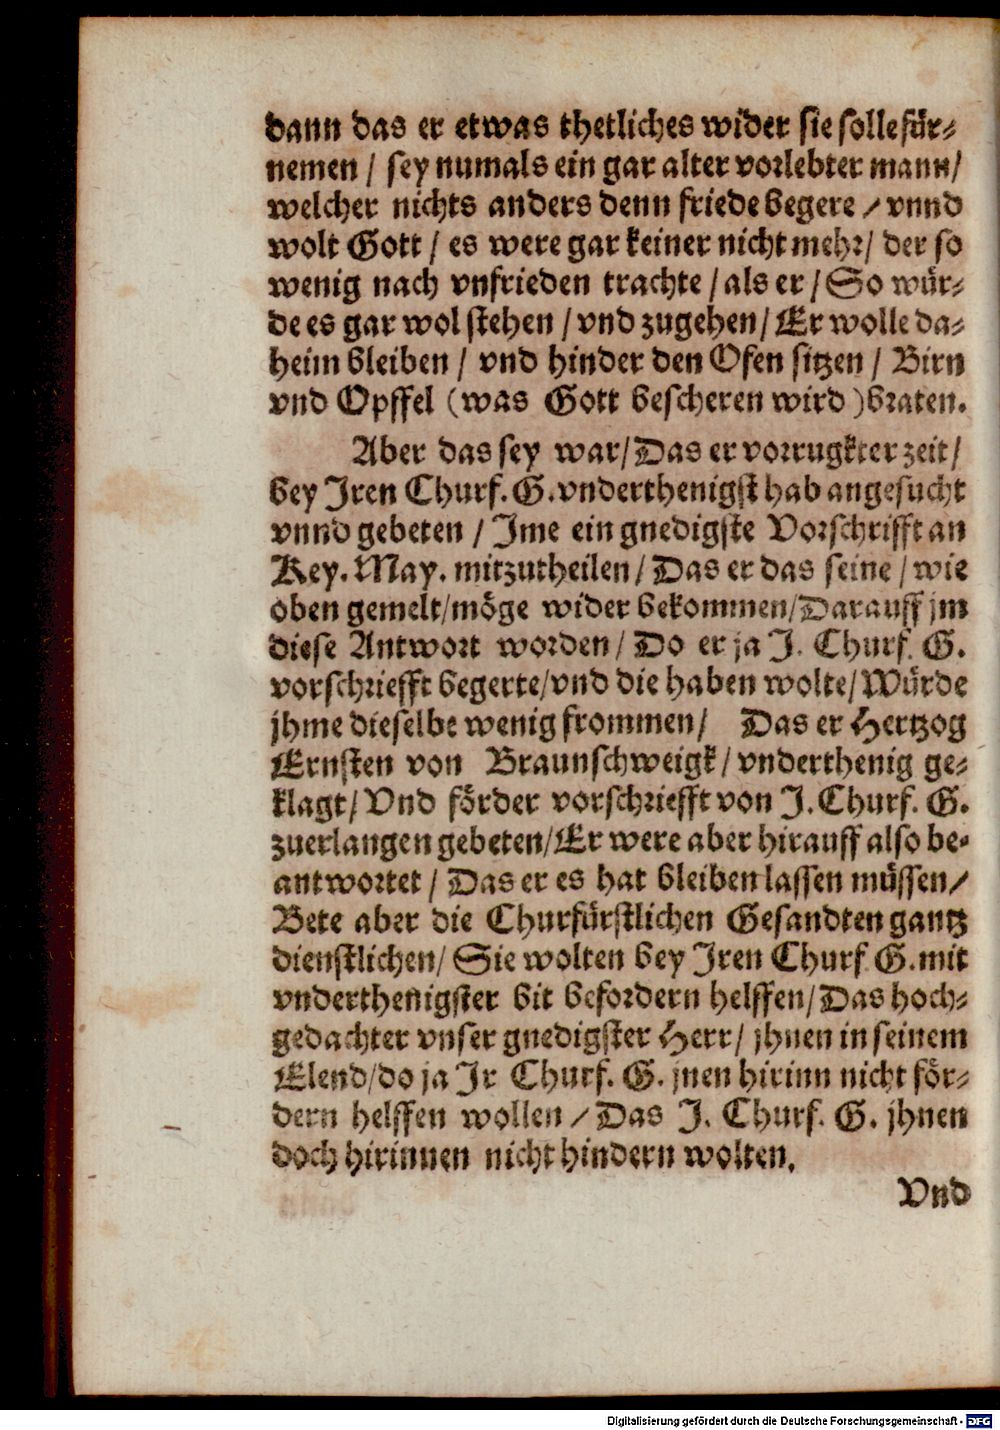 dann das er etwas thetliches wider sie solle für-
nemen / sey numals ein gar alter vorlebter mann/
welcher nichts anders denn friede begere / vnnd
wolt Gott / es were gar keiner nicht mehr/ der so
wenig nach vnfrieden trachte / als er / So wür-
de es gar wol stehen / vnd zugehen / Er wolle da-
heim bleiben / vnd hinder den Ofen sitzen / Birn
vnd Opffel (was Gott bescheren wird) braten.
Aber das sey war/ Das er vorrugkter zeit /
bey Iren Churf. G. vnderthenigst hab angesucht
vnnd gebeten / Ime ein gnedigste Vorschrifft an
Key. May. mitzutheilen / Das er das seine / wie
oben gemelt/ möge wider bekommen/ Darauff jm
diese Antwort worden / Do er ja J. Churf. G.
vorschriefft begerte/ vnd die haben wolte/ Würde
jhme dieselbe wenig frommen / Das er Hertzog
Ernsten von Braunschweigk / vnderthenig ge-
klagt / Vnd förder vorschriefft von J. Churf. G.
zuerlangen gebeten/ Er were aber hirauff also be-
antwortet / Das er es hat bleiben lassen müssen /
Bete aber die Churfürstlichen Gesandten gantz
dienstlichen/ Sie wolten bey Iren Churf G. mit
vnderthenigster bit befordern helffen / Das hoch-
gedachter vnser gnedigster Herr / jhnen in seinem
Elend/ do ja Ir Churf. G. jnen hirinn nicht för-
dern helffen wollen / Das J. Churf. G. jhnen
doch hirinnen nicht hindern wolten.
Vnd
Digitalisierung gefördert durch die Deutsche Forschungsgemeinschaft - DFG